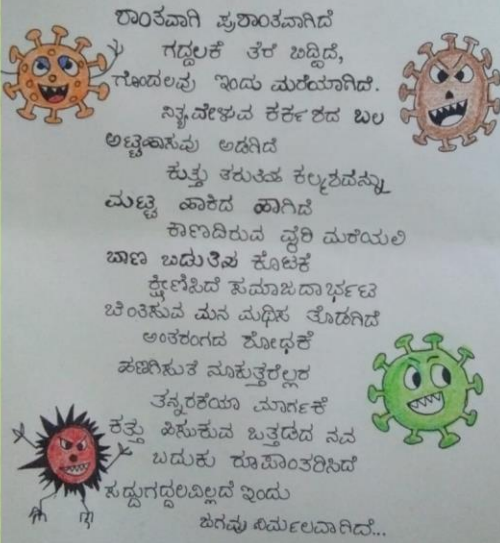 ಶಾಂತವಾಗಿ ಪ್ರಶಾಂತವಾಗಿದೆ
ಗದ್ದಲಕೆ ತೆರೆ ಬಿದ್ದಿದೆ,
ಗೊಂದಲವು ಇಂದು ಮರೆಯಾಗಿದೆ.
ನಿತ್ಯವೇಳುವ ಕರ್ಕಶದ ಬಲ
ಅಟ್ಟಹಾಸವು ಅಡಗಿದೆ
ಕುತ್ತು ತರುತಿಹ ಕಲ್ಮಶವನ್ನು
ಮಟ್ಟ ಹಾಕಿದ ಹಾಗಿದೆ
ಕಾಣದಿರುವ ವೈರಿ ಮರೆಯಲಿ
ಬಾಣ ಬಿಡುತಿಹ ಕೊಟಕೆ
ಕ್ಷೀಣಿಸಿದೆ ಸಮಾಜದಾರ್ಭಟ
ಚಿಂತಿಸುವ ಮನ ಮಥಿಸ ತೊಡಗಿದೆ
ಅಂತರಂಗದ ಶೋಧಕೆ
ಹಣಗಿಸುತೆ ನೂಕುತ್ತರೆಲ್ಲರ
ತನ್ನರಕೆಯಾ ಮಾರ್ಗಕೆ
ಕತ್ತು ಹಿಸುಕುವ ಒತ್ತಡದ ನವ
ಬದುಕು ರೂಪಾಂತರಿಸಿದೆ
ಸದ್ದುಗದ್ದಲವಿಲ್ಲದೆ ಇಂದು
ಜಗವು ನಿರ್ಮಲವಾಗಿದೆ...